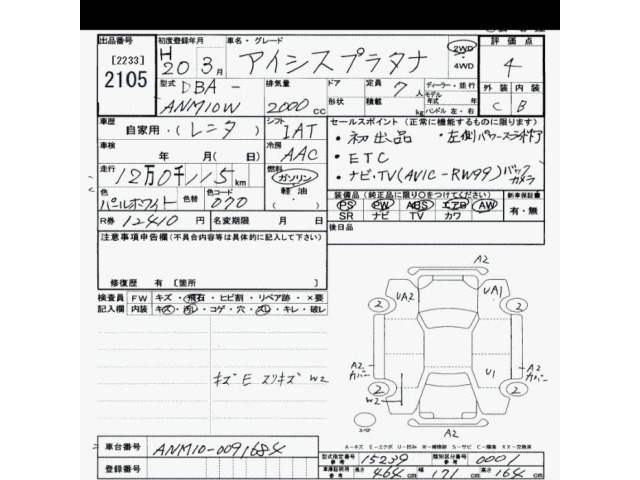 出品番号 初度登録年月 車名・グレード 2WD 4WD 評価点
[2233] H 20 3月 アイシスプラタナ 4
2105 型式 DBA- 排気量 ドア 定員 7人 ディーラー・並行 外装 内装
ANM10W 2000cc 形状 積載 kg モデル年式 年 ハンドル 左・右 C B
車歴 自家用・(レンタ) シフト IAT セールスポイント (正常に機能するものに限ります)
・初出品 ・左側パワースライドドア
車検 年 月(日) 冷房 AAC
・ETC
走行 12万0千115km 燃料 ガソリン 軽油
・ナビ・TV(AVIC-RW99) バックカメラ
色 パールホワイト 色替 色コード 070
装備品 (純正品に限り○をつけてください) 新車保証書
PS PW ABS エアB AW 有・無
SR ナビ TV カワ
R券 12410円 名変期限 月 日
後日品
注意事項申告欄(不具合内容等は具体的に記入して下さい)
修復歴 有 [箇所 ]
検査員記入欄 FW キズ・飛石・ヒビ割・リペア跡・×要
内装 キズ・汚レ・コゲ・穴・スレ・キレ・破レ
A2
2 UA2 UA1 2
A2 カバー A2 カバー
U1
2 W2 2
キズE スリキズ W2
スペア A2
A-キズ E-エクボ U-凹み W-補修跡 S-サビ C-腐食 XX-交換済
車台番号 ANM10-0091684
型式指定番号 参考 15239 類別区分番号 参考 0001
登録番号
車庫証明用 参考 長さ 464cm 幅 171cm 高さ 164cm